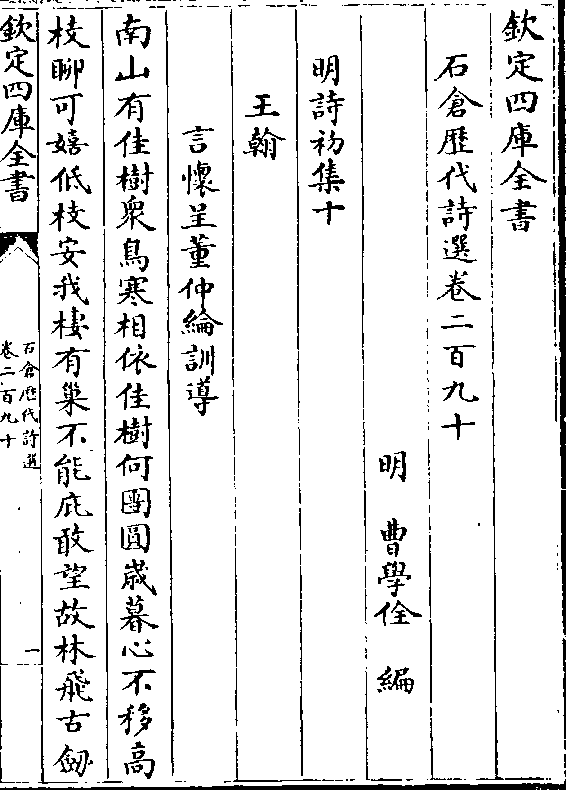 欽定四庫全書
石倉歴代詩選卷二百九十
明 曹學佺 編
明詩初集十
王翰
言懷呈董仲綸訓導
南山有佳樹衆鳥寒相依佳樹何團圓歳暮心不移高
枝聊可嬉低枝安我棲有巢不能庇敢望故林飛古劒
欽定四庫全書
石倉歴代詩選
卷二百九十
一